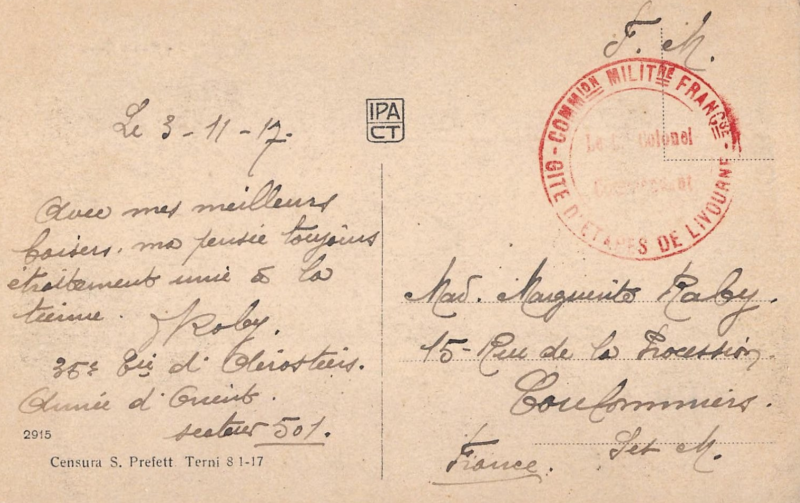 F. M.
Le 3-11-17.
IPA
CT
COMMION MILITRE FRANCSE - GITE D'ETAPES DE LIVOURNE -
Le Lt Colonel
Commandant
Avec mes meilleurs
baisers, ma pensée toujours
étroitement unie à la
tienne.
Roby.
35e Cie d'Aérostiers.
Armée d'Orient.
secteur 501.
2915
Censura S. Prefett. Terni 8 1-17
Mad. Marguerite Raby.
15-Rue de la Procession.
Coulommiers.
Set M.
France.